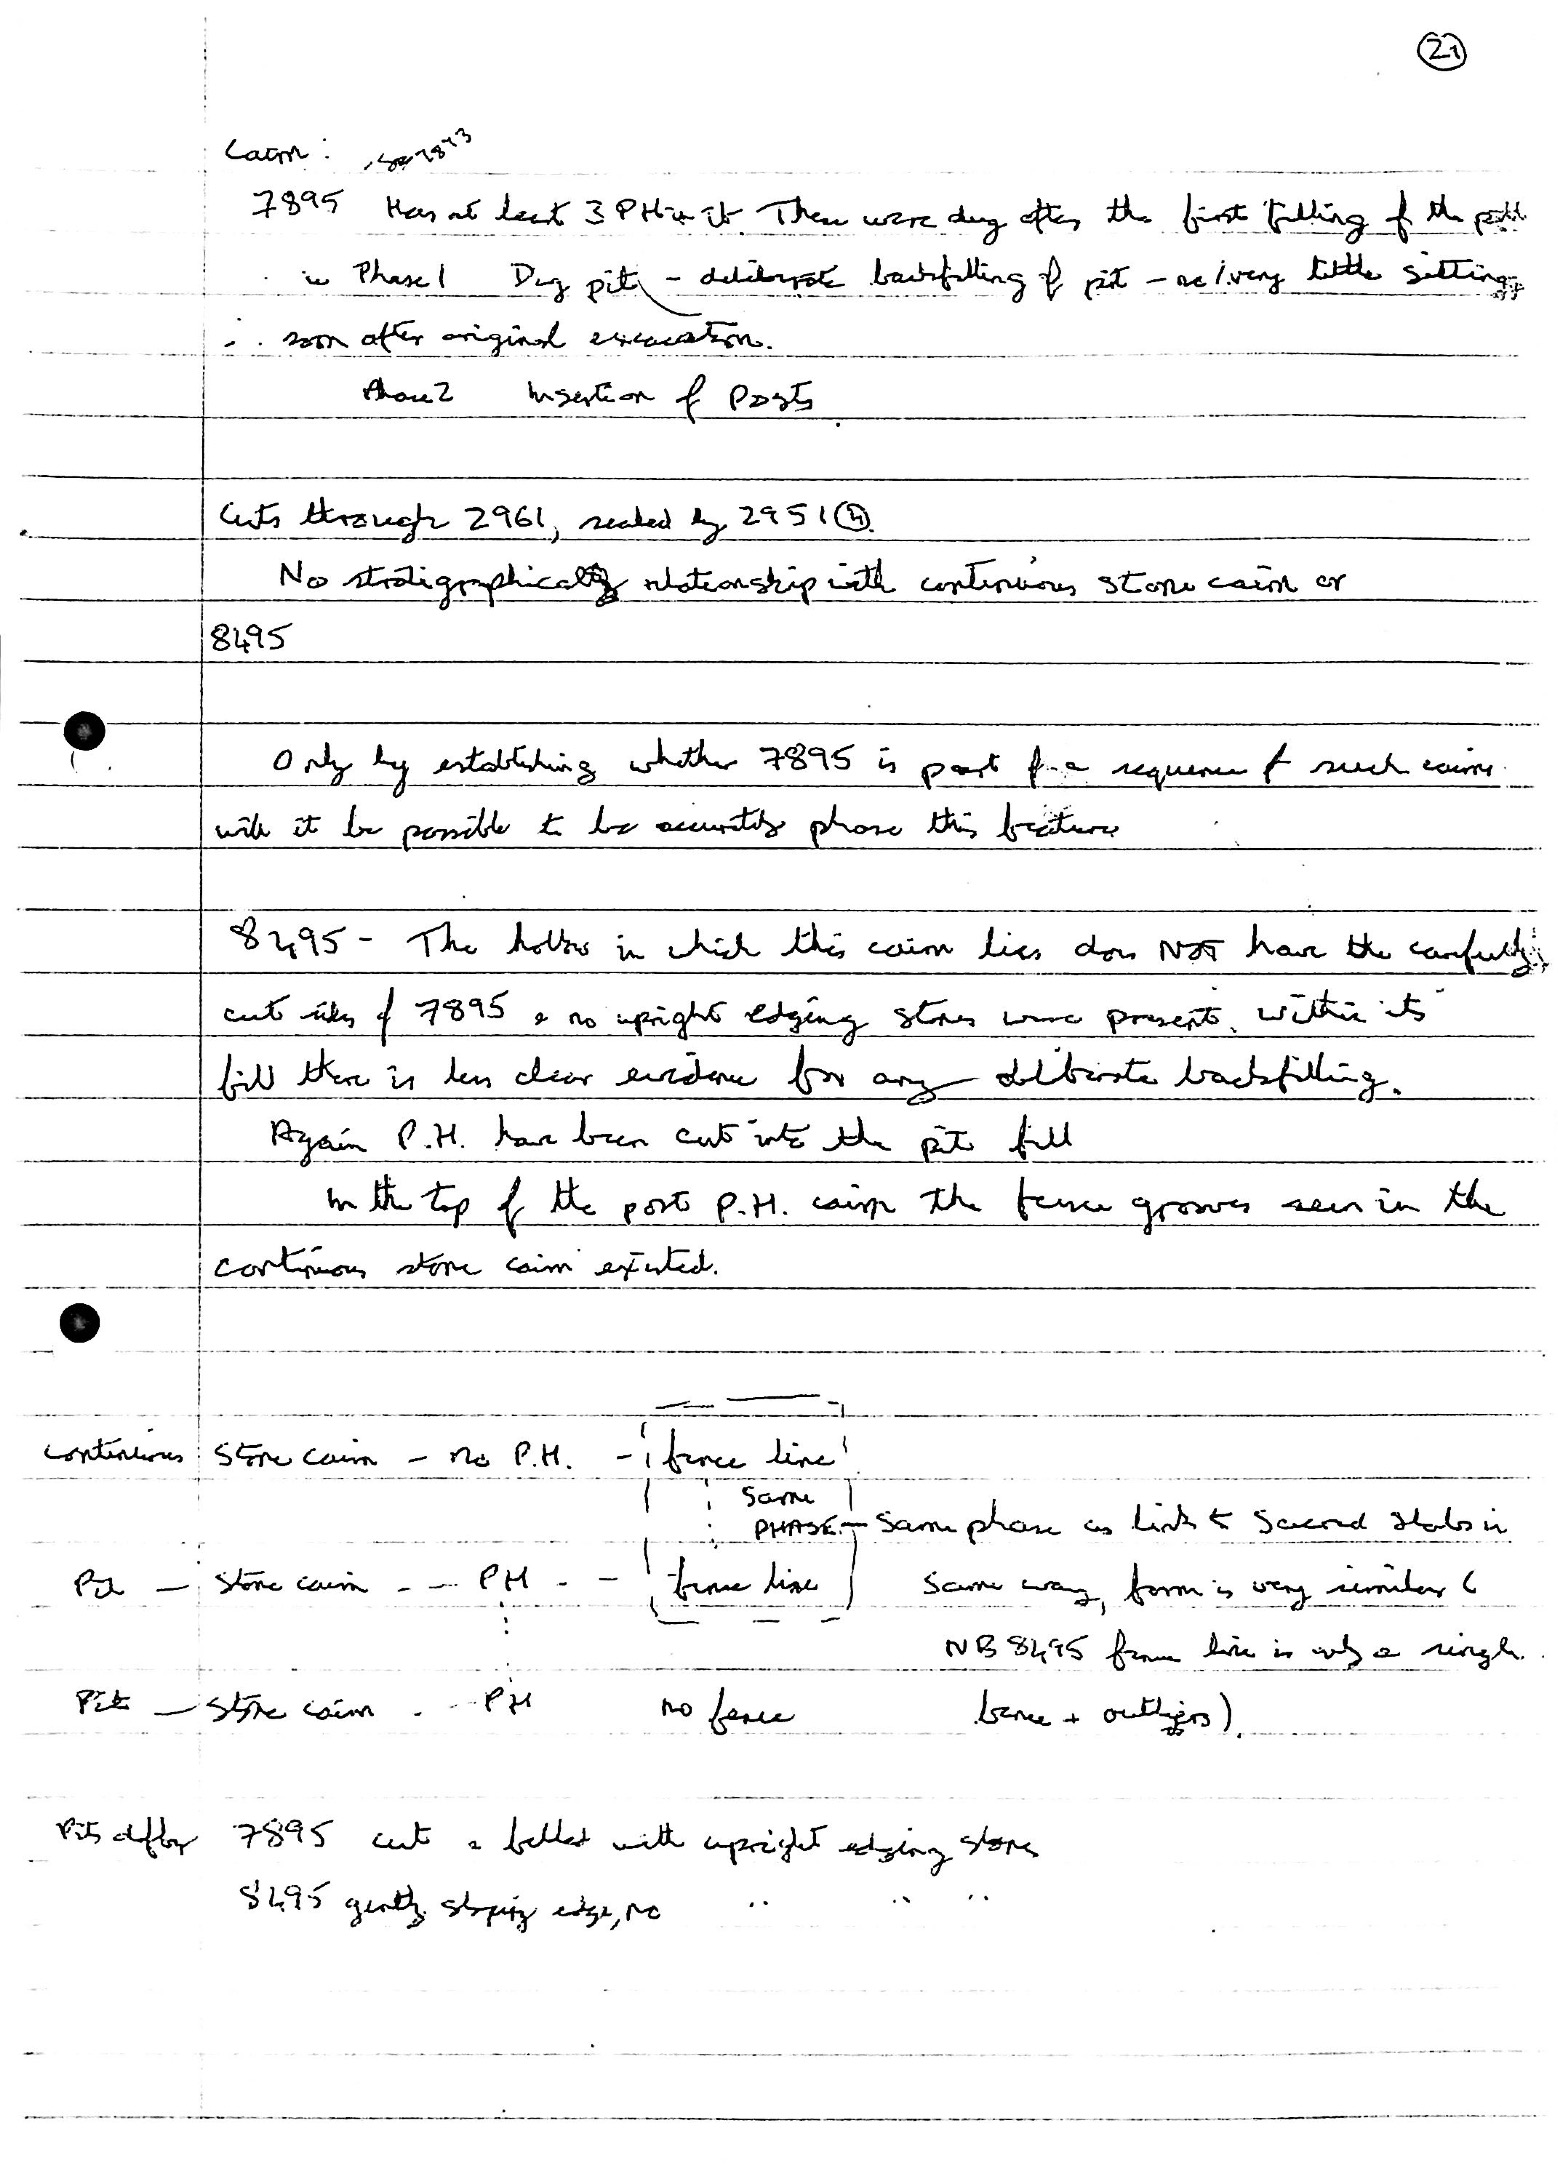 21
Cairn: See 7873
7895 Has at least 3 PH in it. These were dug after the first filling of the pit
in Phase 1 Dug pit – deliberate backfilling of pit – no / very little silting
∴ soon after original excavation.
Phase 2 Insertion of Posts
Cuts through 2961, sealed by 2951 (4).
No stratigraphically relationship with continuous stone cairn or
8495
Only by establishing whether 7895 is part of a sequence of such cairns
will it be possible to be accurately phase this feature
8495 - The hollow in which this cairn lies does NOT have the carefully
cut sides of 7895 & no upright edging stones were present. Within its
fill there is less clear evidence for any deliberate backfilling.
Again P.H. have been cut into the pit fill
In the top of the post P.H. cairn the fence grooves seen in the
continuous stone cairn existed.
continuous stone cairn – no P.H. – fence line
same
PHASE – Same phase as links to Sacred slabs in
Pit – stone cairn - - PH - - fence line same way, form is very similar (
NB 8495 fence line is only a single
Pit – stone cairn - - PH no fence fence + outliers).
Pits differ 7895 cut & filled with upright edging stones
8495 gently sloping edge, no " " "